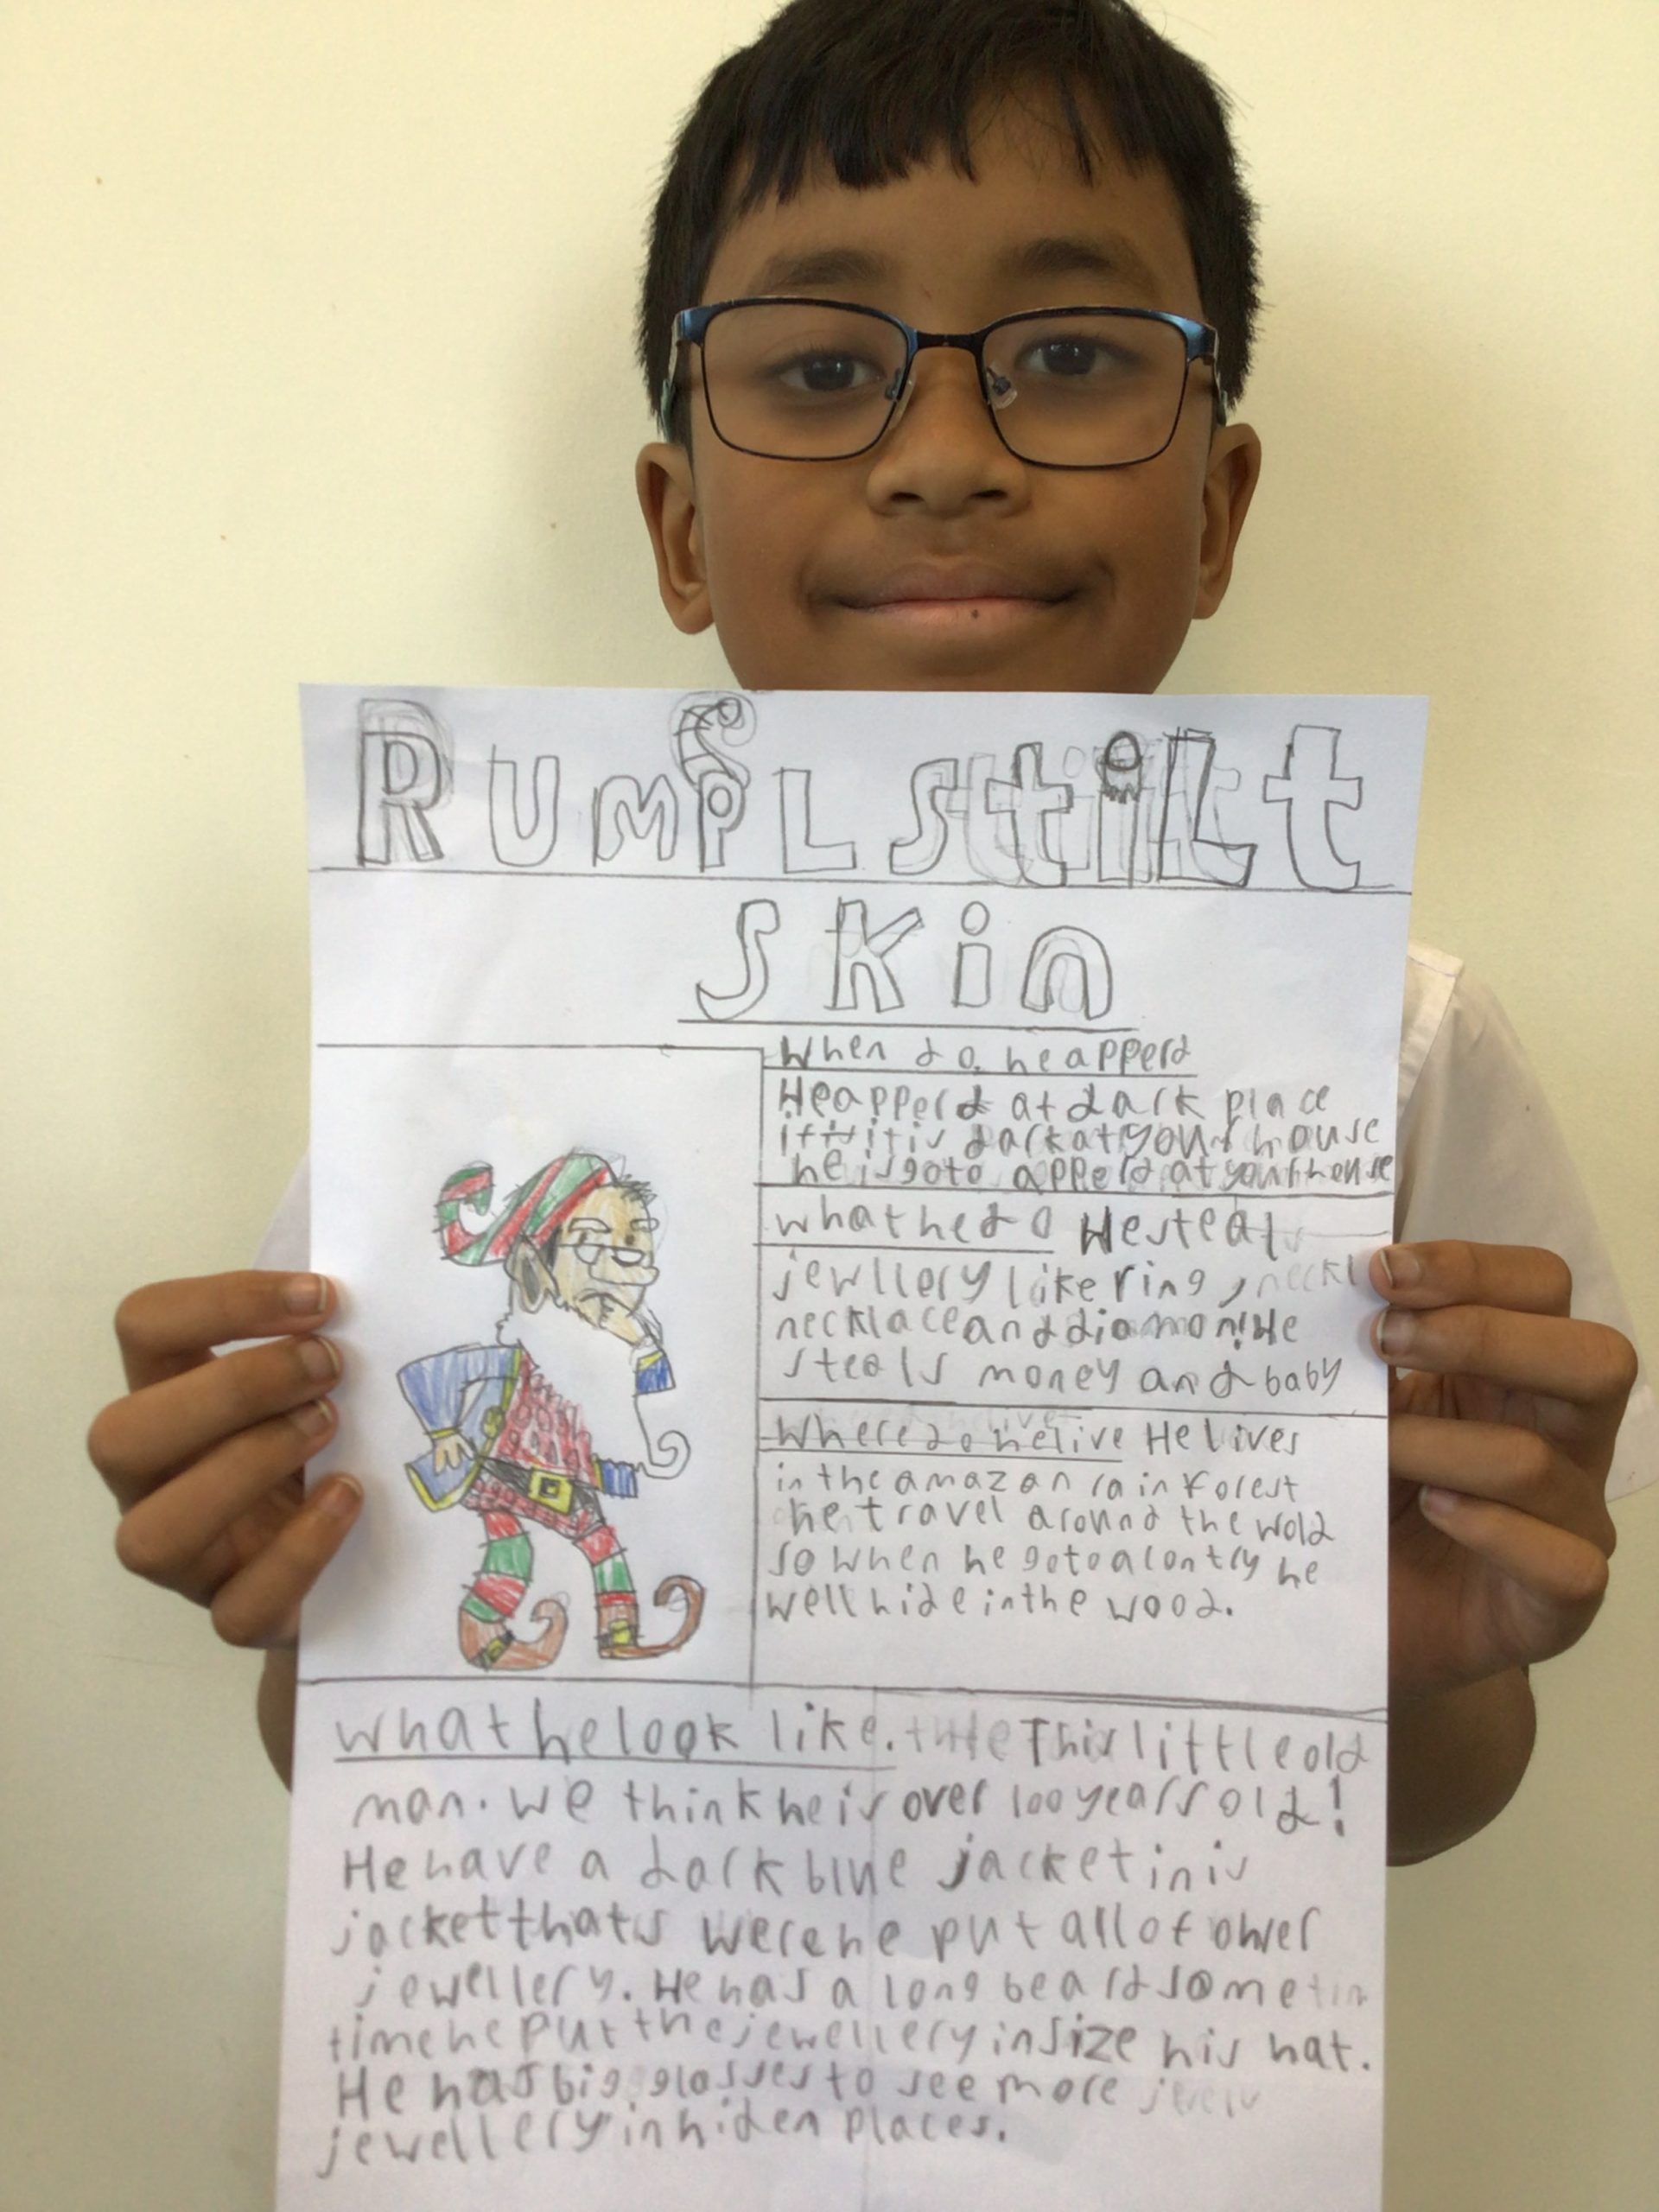 RUMPLStiLt
SKin
When do he apperd
He apperd at dark place
if it is dark at your house
he is goto apperd at your house
what he do He steals
jewllery like ring, neckl
necklace and diamon! He
steals money and baby
Where do he live He lives
in the amazan rain forest
he travel around the wold
so when he goto a contry he
well hide in the wood.
what he look like. This little old
man. we think he is over 100 years old!
He have a dark blue jacket in is
jacket thats were he put all of
jewellery. He has a long beard some tim
time he put the jewellery insize his hat.
He has big glasses to see more
jewellery in hiden places.